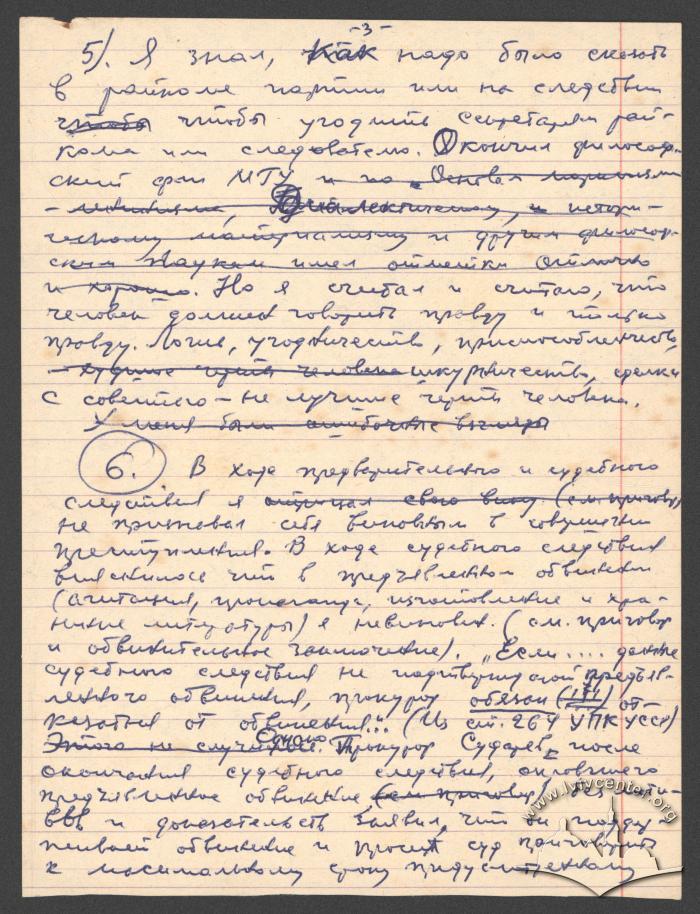 -3-
5). Я знал, как надо было сказать
в райкоме партии или на следствии
чтобы чтобы угодить секретарям рай-
кома или следователю. Окончил философ-
ский фак МГУ и по основам марксизма
- ленинизма, диалектическому, и истори-
ческому материализму и другим философ-
ским наукам имел отметки отлично
и хорошо. Но я считал и считаю, что
человек должен говорить правду и только
правду. Ложь, угодничество, приспособленчество,
- худшие черты человека шкурничество, сделки
с совестью - не лучшие черты человека.
У меня были ошибочные взгляды
6. В ходе предварительного и судебного
следствия я отрицал свою вину (см. приговор)
не признавал себя виновным в совершении
преступления. В ходе судебного следствия
выяснилось что в предъявленном обвинении
(агитация, пропаганда, изготовление и хра-
нение литературы) я невиновен. (см. приговор
и обвинительное заключение). „Если .... данные
судебного следствия не подтвердили предъяв-
ленного обвинения, прокурор обязан (!!!) от-
казаться от обвинения"... (Из ст. 264 УПК УССР)
Этого не случилось. Однако Прокурор Сударев, после
окончания судебного следствия,
предъявленное обвинение, (см. приговор) без
и доказательств заявил, что он поддер
живает обвинение и просит суд приговорить
к максимальному сроку предусмотренному
www.lvivcenter.org